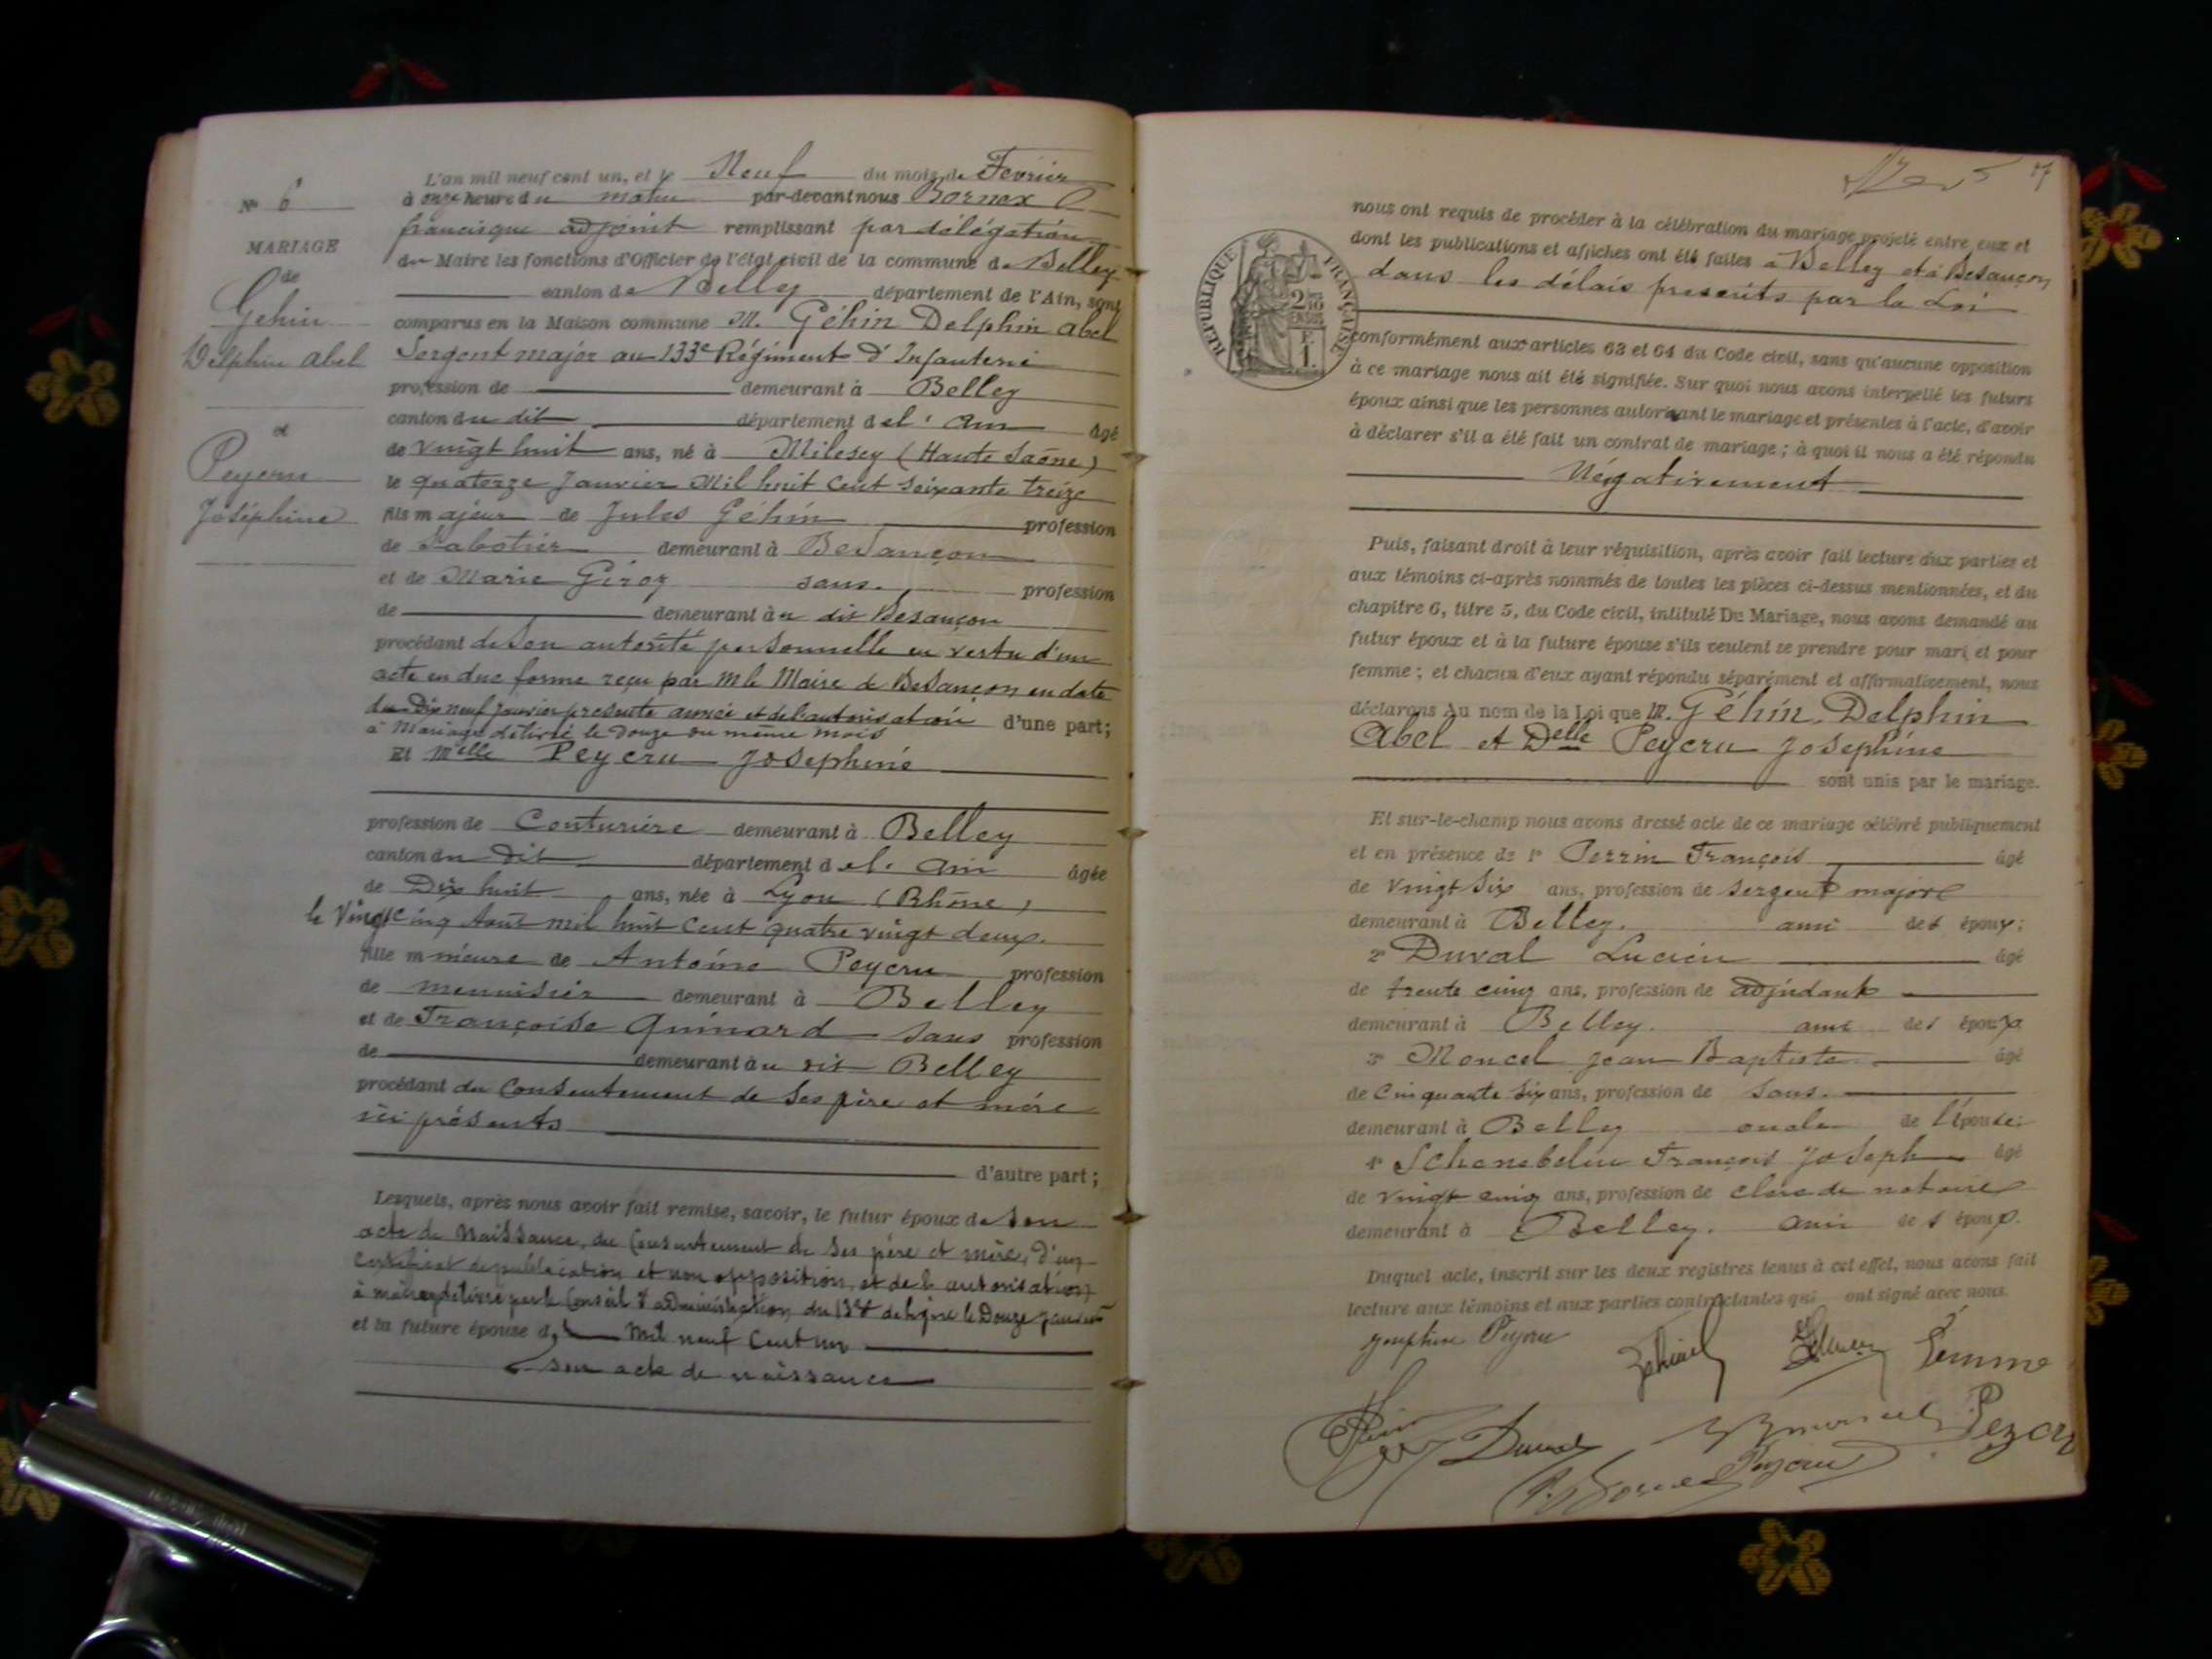 N° 6
MARIAGE
de
Géhin
Delphin Abel
et
Peycru
Joséphine
L'an mil neuf cent un, et le Neuf du mois de Février
à onze heure du matin par-devant nous Bornex
francisque adjoint remplissant par délégation
du Maire les fonctions d'Officier de l'état civil de la commune de Belley
canton de Belley département de l'Ain, sont
comparus en la Maison commune M. Géhin Delphin Abel
Sergent major au 133e Régiment d'Infanterie
profession de demeurant à Belley
canton du dit département de l'Ain âgé
de vingt huit ans, né à Milesey (Haute Saône)
le quatorze Janvier Mil huit cent soixante treize
fils majeur de Jules Géhin profession
de Sabotier demeurant à Besançon
et de Marie Giroz sans profession
de demeurant àu dit Besançon
procédant de son autorité personnelle en vertu d'un
acte en due forme reçu par M le Maire de Besançon en date
du Dix neuf Janvier présente année et de l'autorisation d'une part;
à Mariage délivré le Douze du même mois
Et Melle Peycru Joséphine
profession de Couturière demeurant à Belley
canton du Dit département de l'Ain âgée
de Dix huit ans, née à Lyon (Rhône)
le Vingt cinq Août mil huit cent quatre vingt deux
fille mineure de Antoine Peycru profession
de menuisier demeurant à Belley
et de Françoise Guinard sans profession
de demeurant àu dit Belley
procédant du Consentement de ses père et mère
ici présents
d'autre part;
Lesquels, après nous avoir fait remise, savoir, le futur époux de son
acte de Naissance, du Consentement de ses père et mère, d'un
Certificat de publication et non opposition, et de l'autorisation
à mariage délivré par le Conseil d'administration du 133e de ligne le Douze Janvier
et la future épouse d Mil neuf Cent un
son acte de naissance
17
nous ont requis de procéder à la célébration du mariage projeté entre eux et
dont les publications et affiches ont été faites à Belley et à Besançon
dans les délais prescrits par la Loi
RÉPUBLIQUE FRANÇAISE
2/10 EN SUS
1 F.
conformément aux articles 63 et 64 du Code civil, sans qu'aucune opposition
à ce mariage nous ait été signifiée. Sur quoi nous avons interpellé les futurs
époux ainsi que les personnes autorisant le mariage et présentes à l'acte, d'avoir
à déclarer s'il a été fait un contrat de mariage; à quoi il nous a été répondu
Négativement
Puis, faisant droit à leur réquisition, après avoir fait lecture aux parties et
aux témoins ci-après nommés de toutes les pièces ci-dessus mentionnées, et du
chapitre 6, titre 5, du Code civil, intitulé Du Mariage, nous avons demandé au
futur époux et à la future épouse s'ils veulent se prendre pour mari et pour
femme; et chacun d'eux ayant répondu séparément et affirmativement, nous
déclarons Au nom de la Loi que M. Géhin, Delphin
Abel et Delle Peycru Joséphine
sont unis par le mariage.
Et sur-le-champ nous avons dressé acte de ce mariage célébré publiquement
et en présence de 1° Perrin François âgé
de vingt six ans, profession de sergent major
demeurant à Belley. ami des époux;
2° Duval Lucien âgé
de trente cinq ans, profession de adjudant
demeurant à Belley. ami des époux
3° Moncel Jean Baptiste âgé
de Cinquante six ans, profession de sans.
demeurant à Belley oncle de l'épouse;
4° Schenebelin François Joseph âgé
de vingt cinq ans, profession de clerc de notaire
demeurant à Belley. ami des époux.
Duquel acte, inscrit sur les deux registres tenus à cet effet, nous avons fait
lecture aux témoins et aux parties contractantes qui ont signé avec nous.
Joséphine Peycru
femme
Duval
Peycru